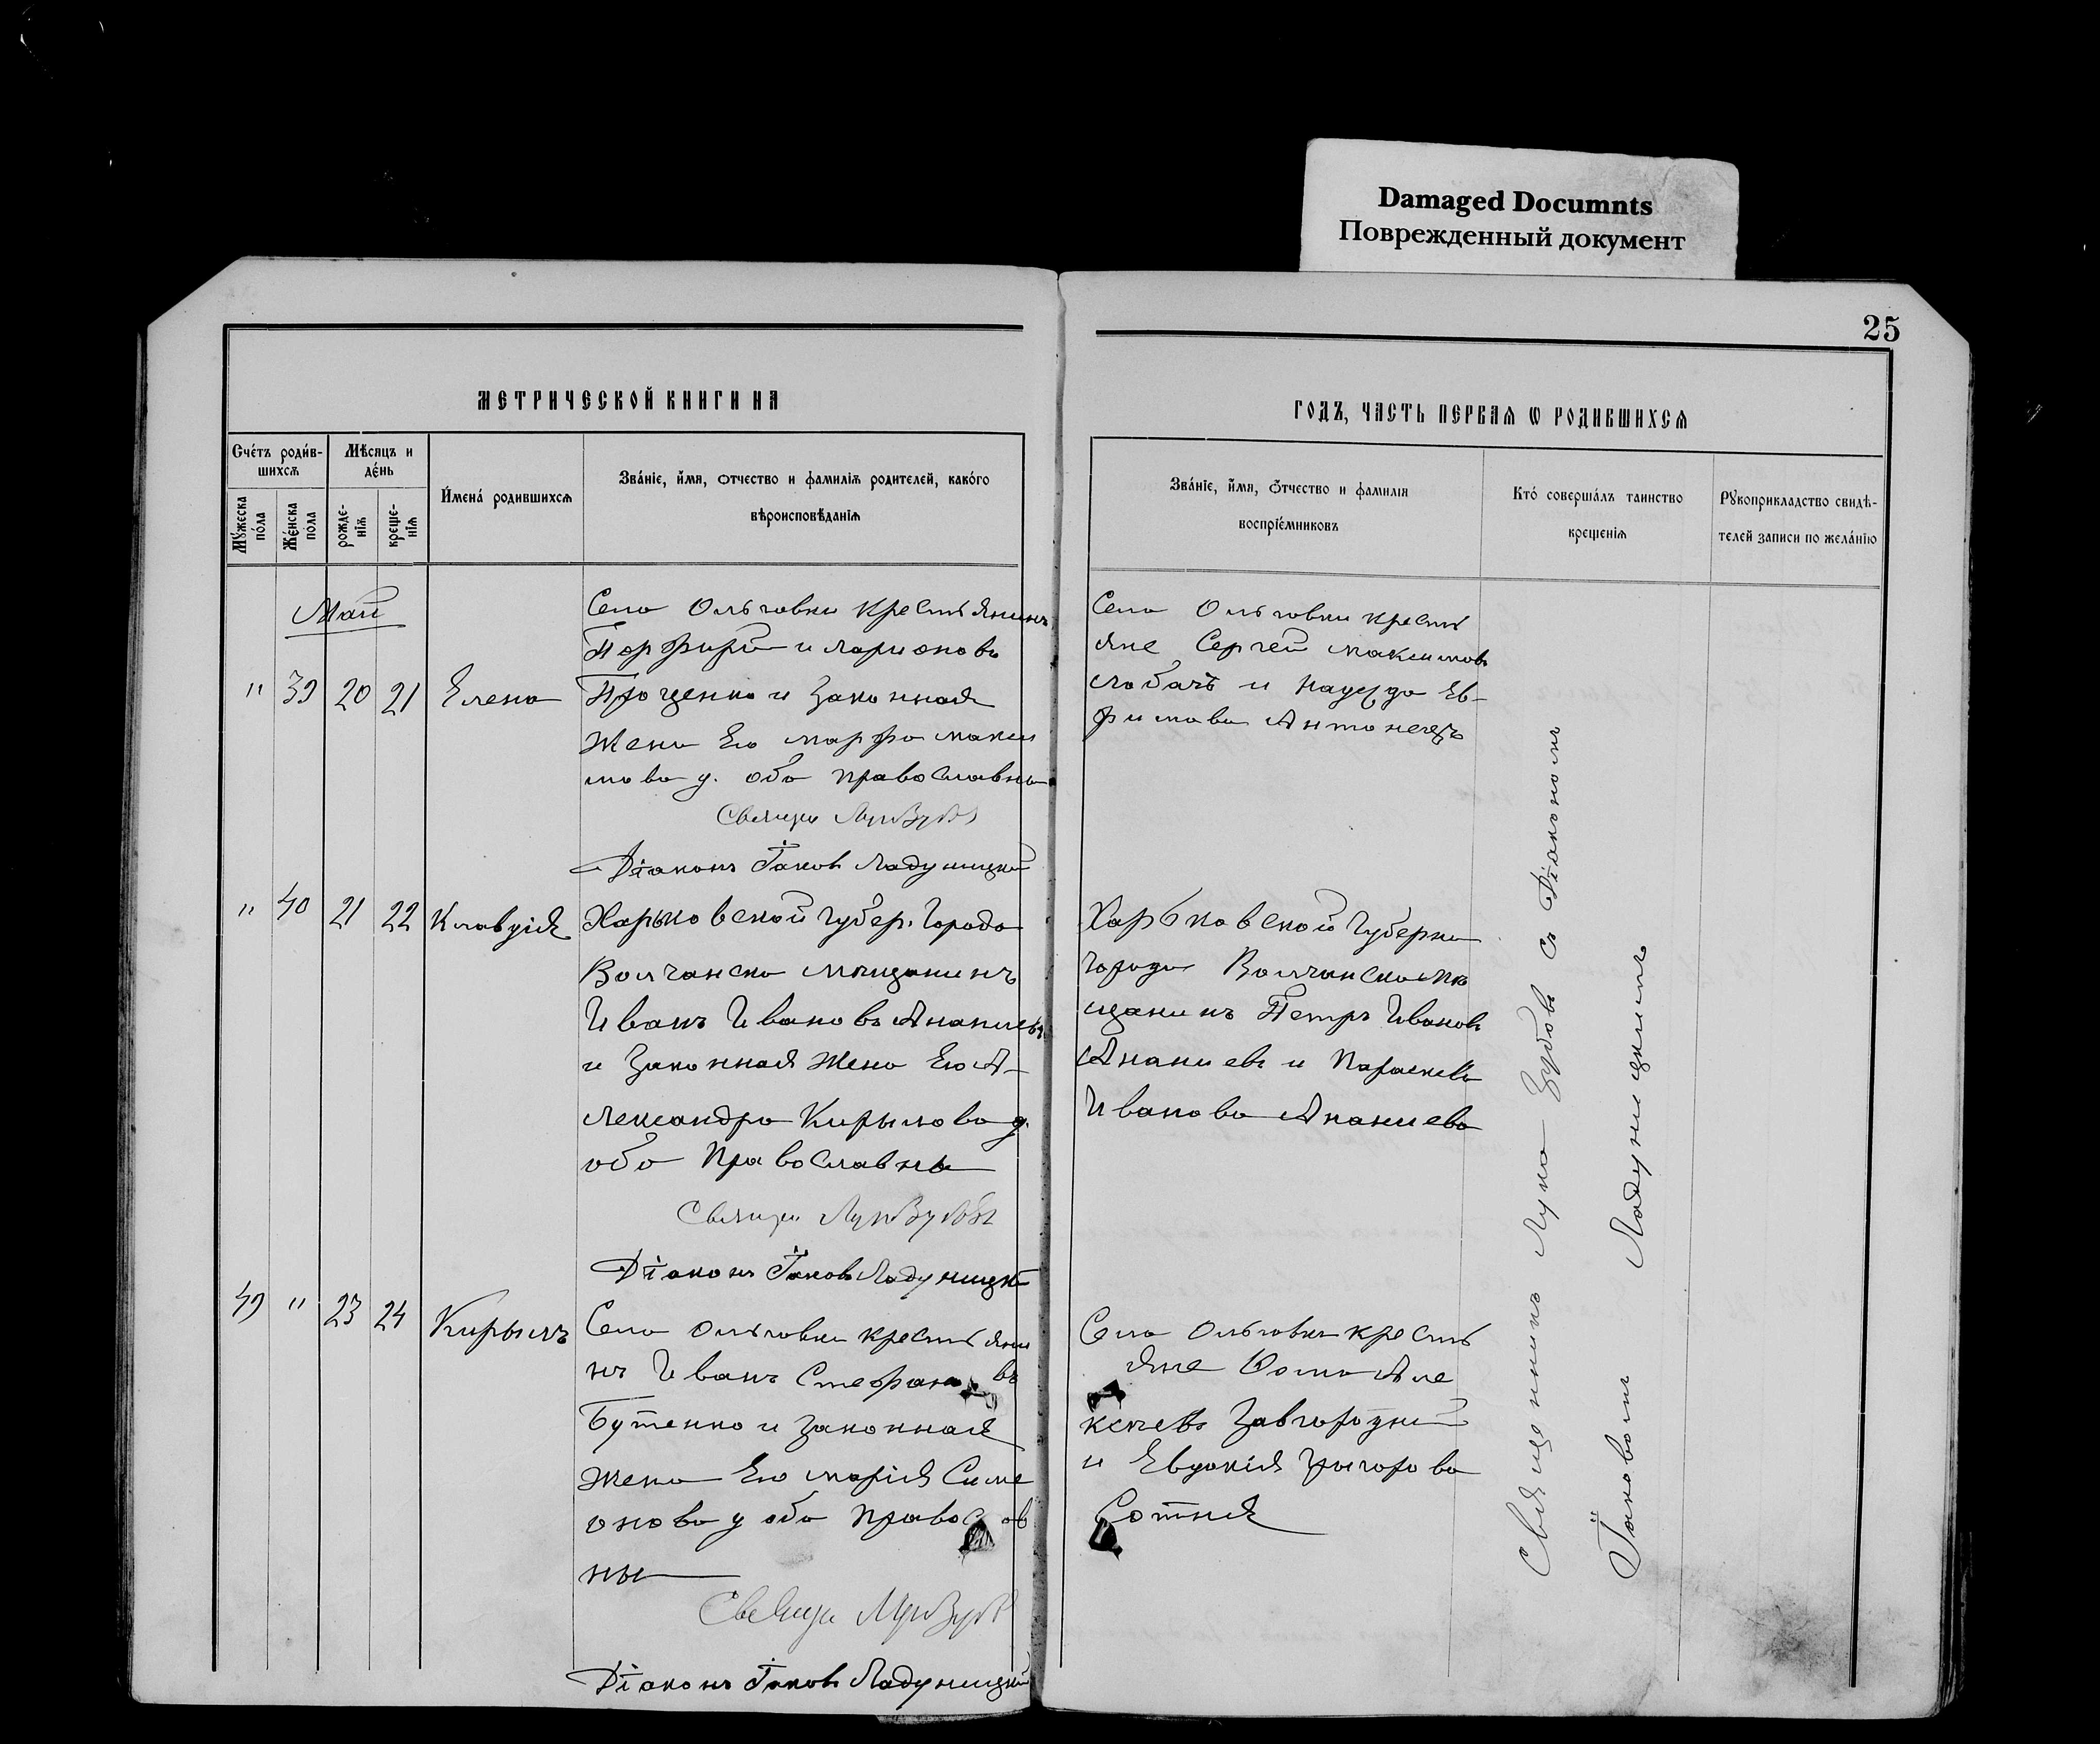 Damaged Documnts
Поврежденный документ
25
МЕТРИЧЕСКОЙ КНИГИ НА
ГОДЪ, ЧАСТЬ ПЕРВАѦ Ѡ РОДИВШИХСѦ
Сче́тъ роди́в-
шихсѧ
Мѣ́сяцъ и
де́нь
Му́жеска
по́ла
Же́нска
по́ла
рожде-
нїѧ
креще-
нїѧ
И҆мена́ родившихсѧ
Зва́нїе, и҆́мя, ѻтчество и фамилїѧ родителей, како́го
вѣроисповѣ́данїѧ
Зва́нїе, и҆́мя, ѻтчество и фамилїя
воспрїе́мниковъ
Кто́ соверша́лъ таинство
крещенїѧ
Рукоприкладство свидѣ-
телей записи по жела́нїю
Май
" 39 20 21 Елена
Села Ольговки крестьянинъ
Порфирій Иларионовъ
Проценко и законная
жена Его Марфа Макси
мова у. оба православны
Свящ. Лука Зубовъ
Діаконъ Іаковъ Ладуницкій
Села Ольговки кресть
яне Сергей Максимовъ
Слобачъ и Надежда Ев-
фимова Антонецъ
" 40 21 22 Клавдія
Харьковской Губер. Города
Волчанска мещанинъ
Иванъ Ивановъ Ананиевъ
и Законная Жена Его А-
лександра Кирылова у.
оба Православны
Свящ. Лука Зубовъ
Діаконъ Іаковъ Ладуницкій
Харьковской Губернии
Города Волчанска Ме
щанинъ Петръ Ивановъ
Ананиевъ и Параскева
Иванова Ананиева
49 " 23 24 Кирылъ
Села Ольговки крестьяни
нъ Иванъ Стефановъ
Бутенко и законная
жена Его Марія Симе
онова у оба правосл ав
ны
Свящ. Лука Зубовъ
Діаконъ Іаковъ Ладуницкій
Села Ольговки кресть
яне Фома Але
ксеевъ Завгородний
и Евдокія Григорова
Сотня
Священникъ Лука Зубовъ съ Діакономъ
Іаковомъ Ладуницкимъ